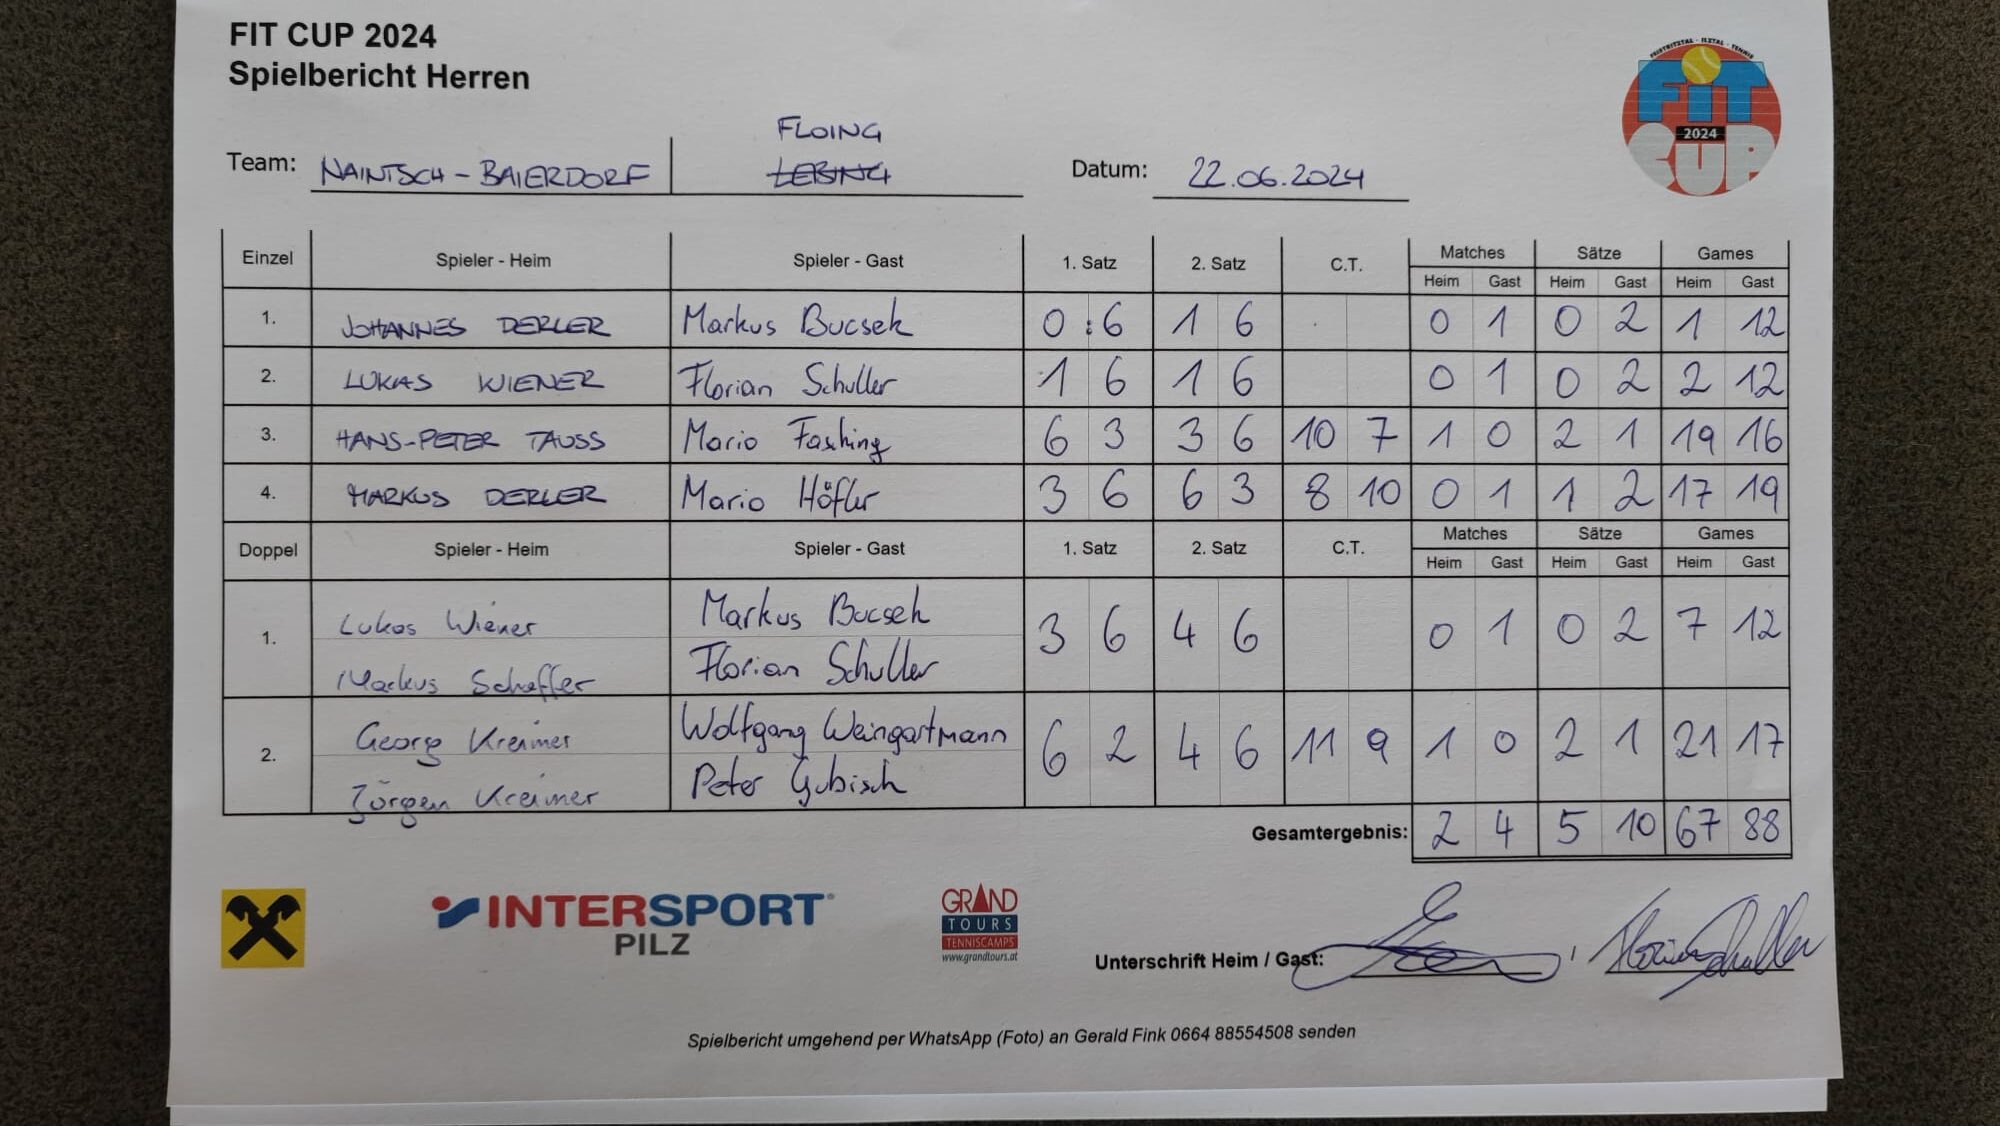 FIT CUP 2024
Spielbericht Herren
FRISTRITZTAL - ILZTAL - TENNIS
FiT
2024
CUP
FLOING
Team: NAINTSCH - BAIERDORF LEBING Datum: 22.06.2024
Einzel Spieler - Heim Spieler - Gast 1. Satz 2. Satz C.T. Matches Sätze Games
Heim Gast Heim Gast Heim Gast
1. JOHANNES DERLER Markus Bucsek 0 : 6 1 6 0 1 0 2 1 12
2. LUKAS WIENER Florian Schuller 1 6 1 6 0 1 0 2 2 12
3. HANS-PETER TAUSS Mario Fasching 6 3 3 6 10 7 1 0 2 1 19 16
4. MARKUS DERLER Mario Höfler 3 6 6 3 8 10 0 1 1 2 17 19
Doppel Spieler - Heim Spieler - Gast 1. Satz 2. Satz C.T. Matches Sätze Games
Heim Gast Heim Gast Heim Gast
1. Lukas Wiener Markus Bucsek 3 6 4 6 0 1 0 2 7 12
Markus Schaffer Florian Schuller
2. Georg Kreimer Wolfgang Weingartmann 6 2 4 6 11 9 1 0 2 1 21 17
Jürgen Kreimer Peter Gubisch
Gesamtergebnis: 2 4 5 10 67 88
INTERSPORT
PILZ
GRAND
TOURS
TENNISCAMPS
www.grandtours.at
Unterschrift Heim / Gast: , Florian Schuller
Spielbericht umgehend per WhatsApp (Foto) an Gerald Fink 0664 88554508 senden